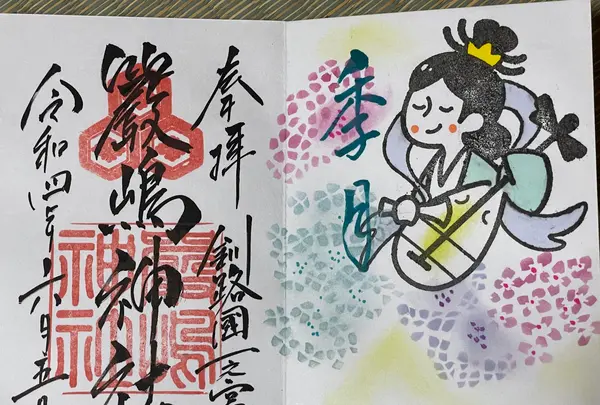 季月
奉拝
釧路國一之宮
嚴嶋神社
令和四年六月五日
嚴嶋
神社